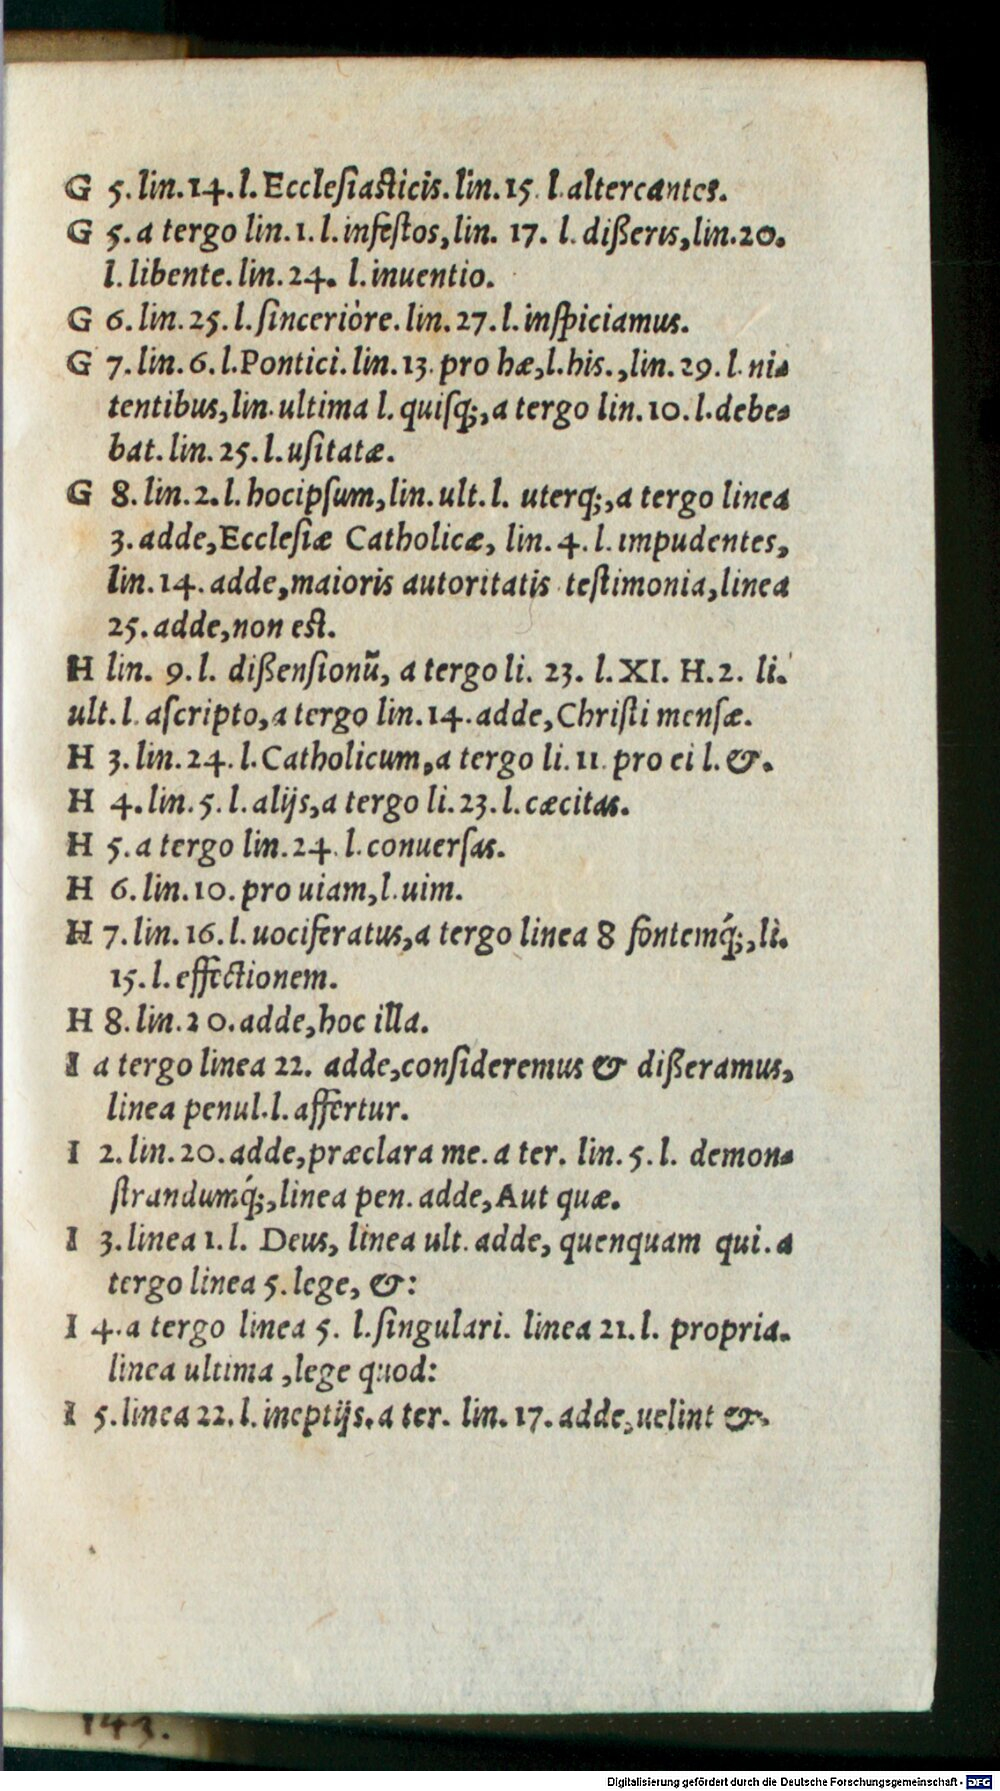 G 5. lin. 14. l. Ecclesiasticis. lin. 15. l. altercantes.
G 5. a tergo lin. 1. l. infestos, lin. 17. l. dißeris, lin. 20.
l. libente. lin. 24. l. inuentio.
G 6. lin. 25. l. sinceriòre. lin. 27. l. inspiciamus.
G 7. lin. 6. l. Pontici. lin. 13. pro hæ, l. his., lin. 29. l. ni-
tentibus, lin. ultima l. quisq;, a tergo lin. 10. l. debe-
bat. lin. 25. l. usitatæ.
G 8. lin. 2. l. hocipsum, lin. ult. l. uterq;, a tergo linea
3. adde, Ecclesiæ Catholicæ, lin. 4. l. impudentes,
lin. 14. adde, maioris autoritatis testimonia, linea
25. adde, non est.
H lin. 9. l. dißensionũ, a tergo li. 23. l. XI. H. 2. li.
ult. l. ascripto, a tergo lin. 14. adde, Christi mensæ.
H 3. lin. 24. l. Catholicum, a tergo li. 11. pro ei l. &.
H 4. lin. 5. l. alijs, a tergo li. 23. l. cæcitas.
H 5. a tergo lin. 24. l. conuersas.
H 6. lin. 10. pro uiam, l. uim.
H 7. lin. 16. l. uociferatus, a tergo linea 8 fontemq́;, li.
15. l. effectionem.
H 8. lin. 20. adde, hoc illa.
I a tergo linea 22. adde, consideremus & dißeramus,
linea penul. l. affertur.
I 2. lin. 20. adde, præclara me. a ter. lin. 5. l. demon-
strandumq́;, linea pen. adde, Aut quæ.
I 3. linea 1. l. Deus, linea ult. adde, quenquam qui. a
tergo linea 5. lege, &:
I 4. a tergo linea 5. l. singulari. linea 21. l. propria.
linea ultima, lege quod:
I 5. linea 22. l. ineptijs. a ter. lin. 17. adde, uelint &.
143.
Digitalisierung gefördert durch die Deutsche Forschungsgemeinschaft - DFG